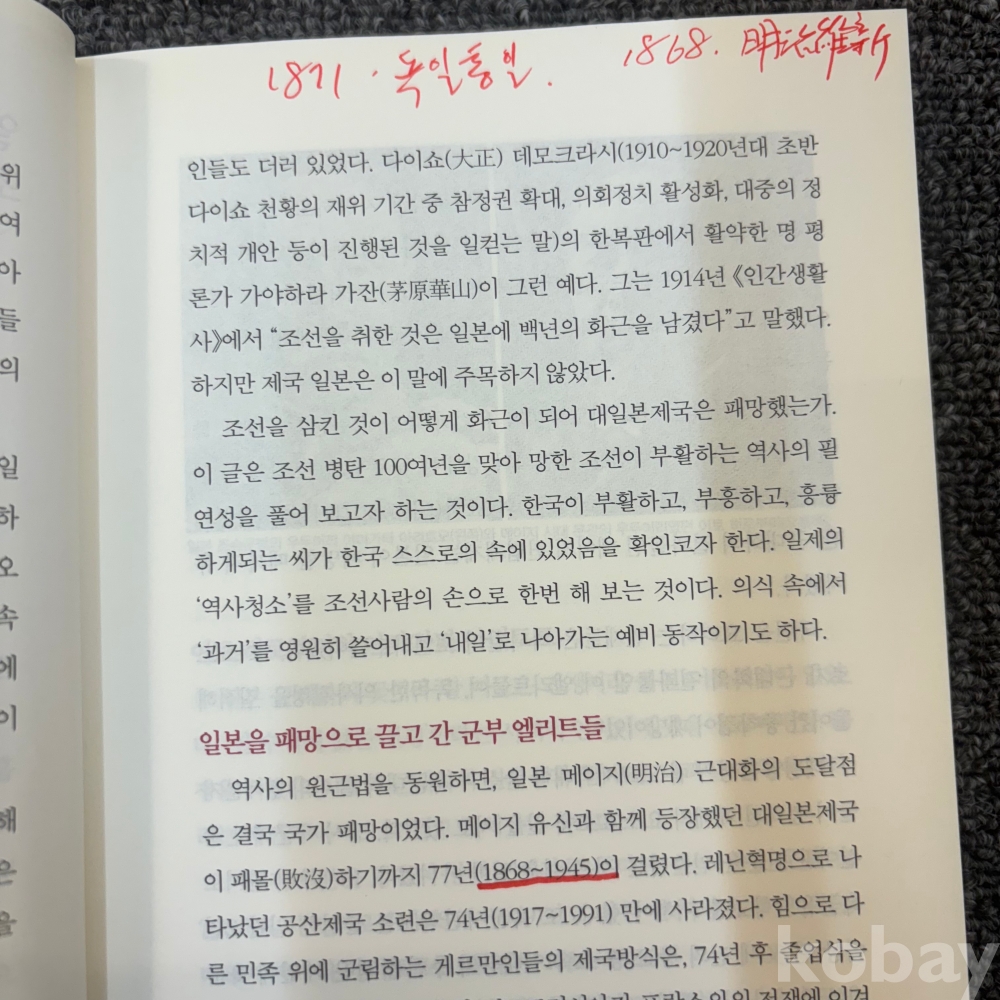 1871. 독일통일.
1868. 明治維新
인들도 더러 있었다. 다이쇼(大正) 데모크라시(1910~1920년대 초반
다이쇼 천황의 재위 기간 중 참정권 확대, 의회정치 활성화, 대중의 정
치적 개안 등이 진행된 것을 일컫는 말)의 한복판에서 활약한 명 평
론가 가야하라 가잔(茅原華山)이 그런 예다. 그는 1914년 《인간생활
사》에서 “조선을 취한 것은 일본에 백년의 화근을 남겼다”고 말했다.
하지만 제국 일본은 이 말에 주목하지 않았다.
조선을 삼킨 것이 어떻게 화근이 되어 대일본제국은 패망했는가.
이 글은 조선 병탄 100여년을 맞아 망한 조선이 부활하는 역사의 필
연성을 풀어 보고자 하는 것이다. 한국이 부활하고, 부흥하고, 흥륭
하게되는 씨가 한국 스스로의 속에 있었음을 확인코자 한다. 일제의
‘역사청소’를 조선사람의 손으로 한번 해 보는 것이다. 의식 속에서
‘과거’를 영원히 쓸어내고 ‘내일’로 나아가는 예비 동작이기도 하다.
일본을 패망으로 끌고 간 군부 엘리트들
역사의 원근법을 동원하면, 일본 메이지(明治) 근대화의 도달점
은 결국 국가 패망이었다. 메이지 유신과 함께 등장했던 대일본제국
이 패몰(敗沒)하기까지 77년(1868~1945)이 걸렸다. 레닌혁명으로 나
타났던 공산제국 소련은 74년(1917~1991) 만에 사라졌다. 힘으로 다
른 민족 위에 군림하는 게르만인들의 제국방식은, 74년 후 졸업식을
위
여
아
들
의
일
하
오
속
에
이
를
해
은
을
kobay